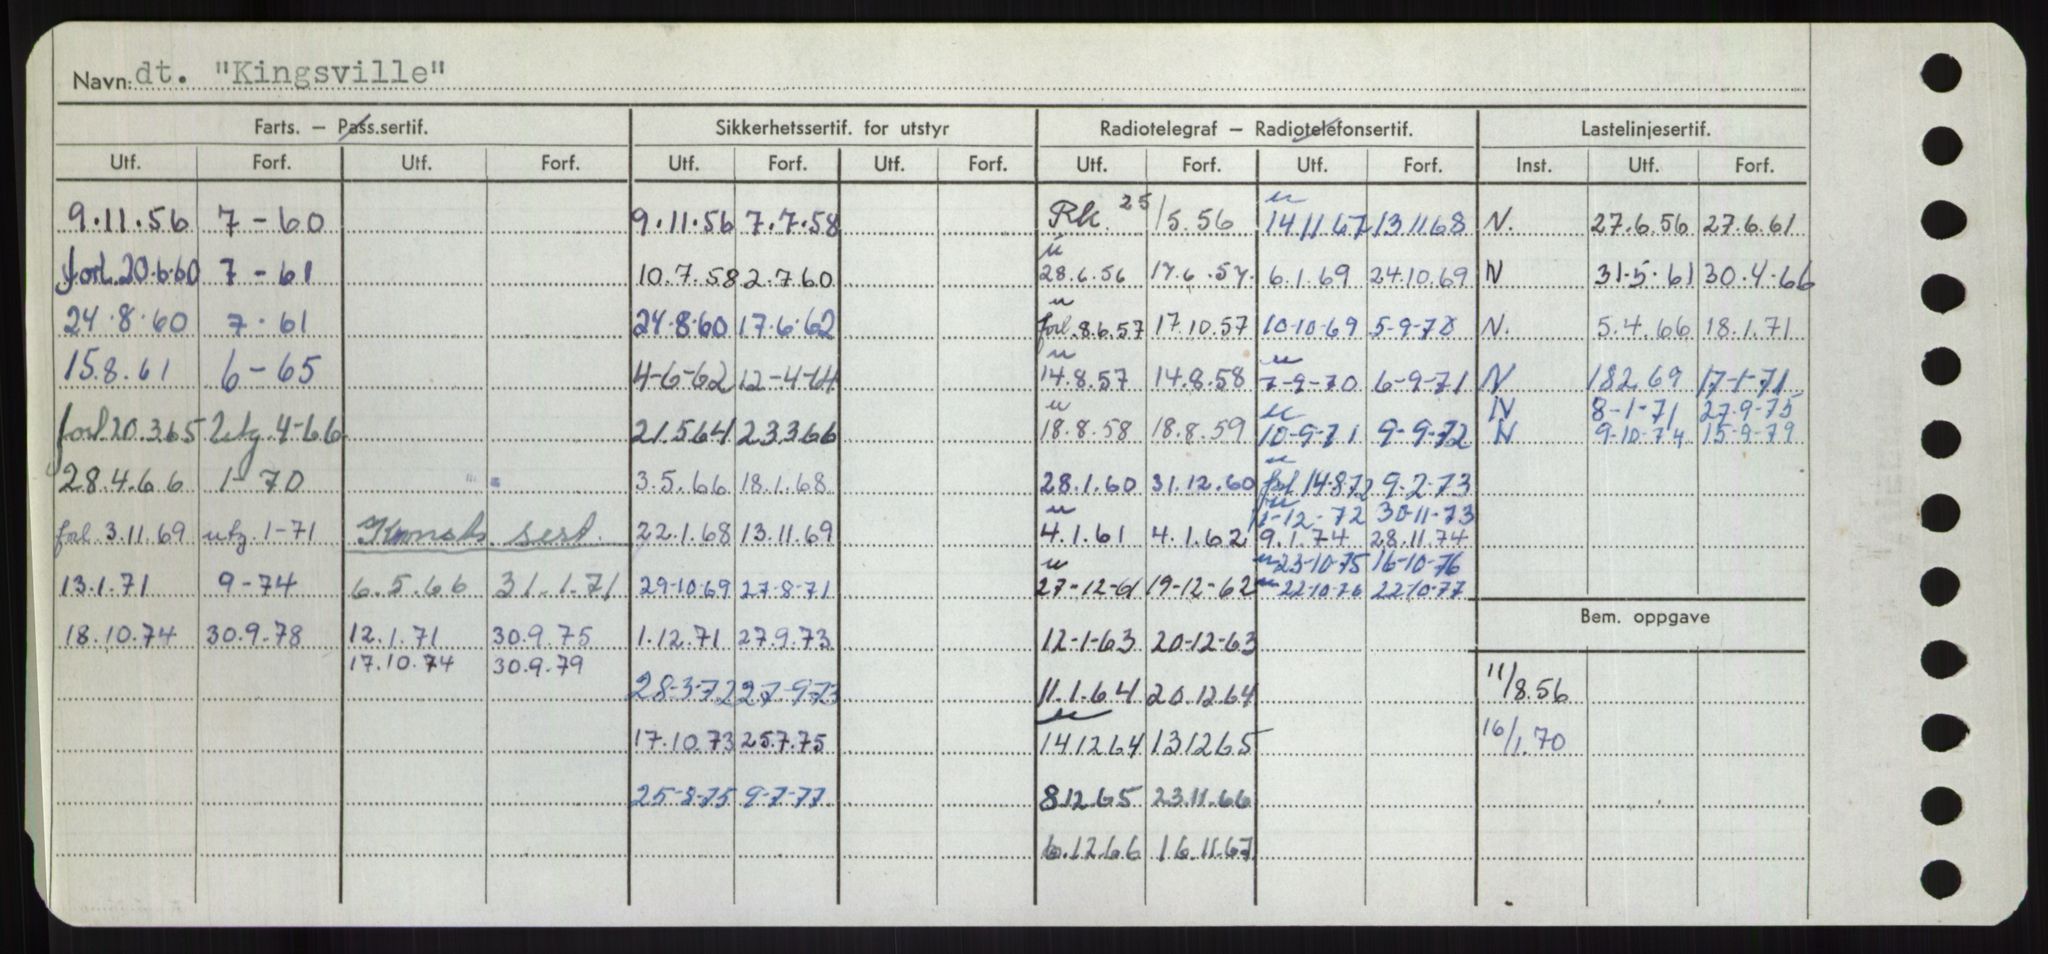 Navn: dt. "Kingsville"
Farts. – Pass.sertif. Sikkerhetssertif. for utstyr Radiotelegraf – Radiotelefonsertif. Lastelinjesertif.
Utf. Forf. Utf. Forf. Utf. Forf. Utf. Forf. Utf. Forf. Utf. Forf. Inst. Utf. Forf.
9.11.56 7-60 9.11.56 7.7.58 Rk. 25/5.56 14.11.67 13.11.68 N. 27.6.56 27.6.61
forl. 20.6.60 7-61 10.7.58 2.7.60 28.6.56 17.6.57. 6.1.69 24.10.69 N 31.5.61 30.4.66
24.8.60 7.61 24.8.60 17.6.62 forl. 8.6.57 17.10.57 10-10-69 5-9-70 N. 5.4.66 18.1.71
15.8.61 6-65 4-6-62 12-4-64 14.8.57 14.8.58 7-9-70 6-9-71 N 18.2.69 17-1-71
N 8-1-71 27.9-75
forl 20.3.65 utg. 4-66 21.5.64 23.3.66 18.8.58 18.8.59 10-9-71 9-9-72 N 9-10-74 15-9-79
28.4.66 1-70 3.5.66 18.1.68 28.1.60 31.12.60 forl 14.8.72 9.2.73
1-12-72 30-11-73
forl. 3.11.69 utg. 1-71 Konstr. sert. 22.1.68 13.11.69 4.1.61 4.1.62 9.1.74 28.11.74
23-10-75 16-10-76
13.1.71 9-74 6.5.66 31.1.71 29-10-69 27-8-71 27-12-61 19-12-62 22-10-76 22-10-77
Bem. oppgave
18.10.74 30.9.78 12.1.71 30.9.75 1.12.71 27.9.73 12-1-63 20-12-63
17.10.74 30.9.79
28-3-72 27-9-73 11.1.64 20.12.64 11/8.56
17.10.73 25.7.75 14.12.64 13.12.65 16/1.70
25-8-75 9-7-77 8.12.65 23.11.66
6.12.66 16.11.67